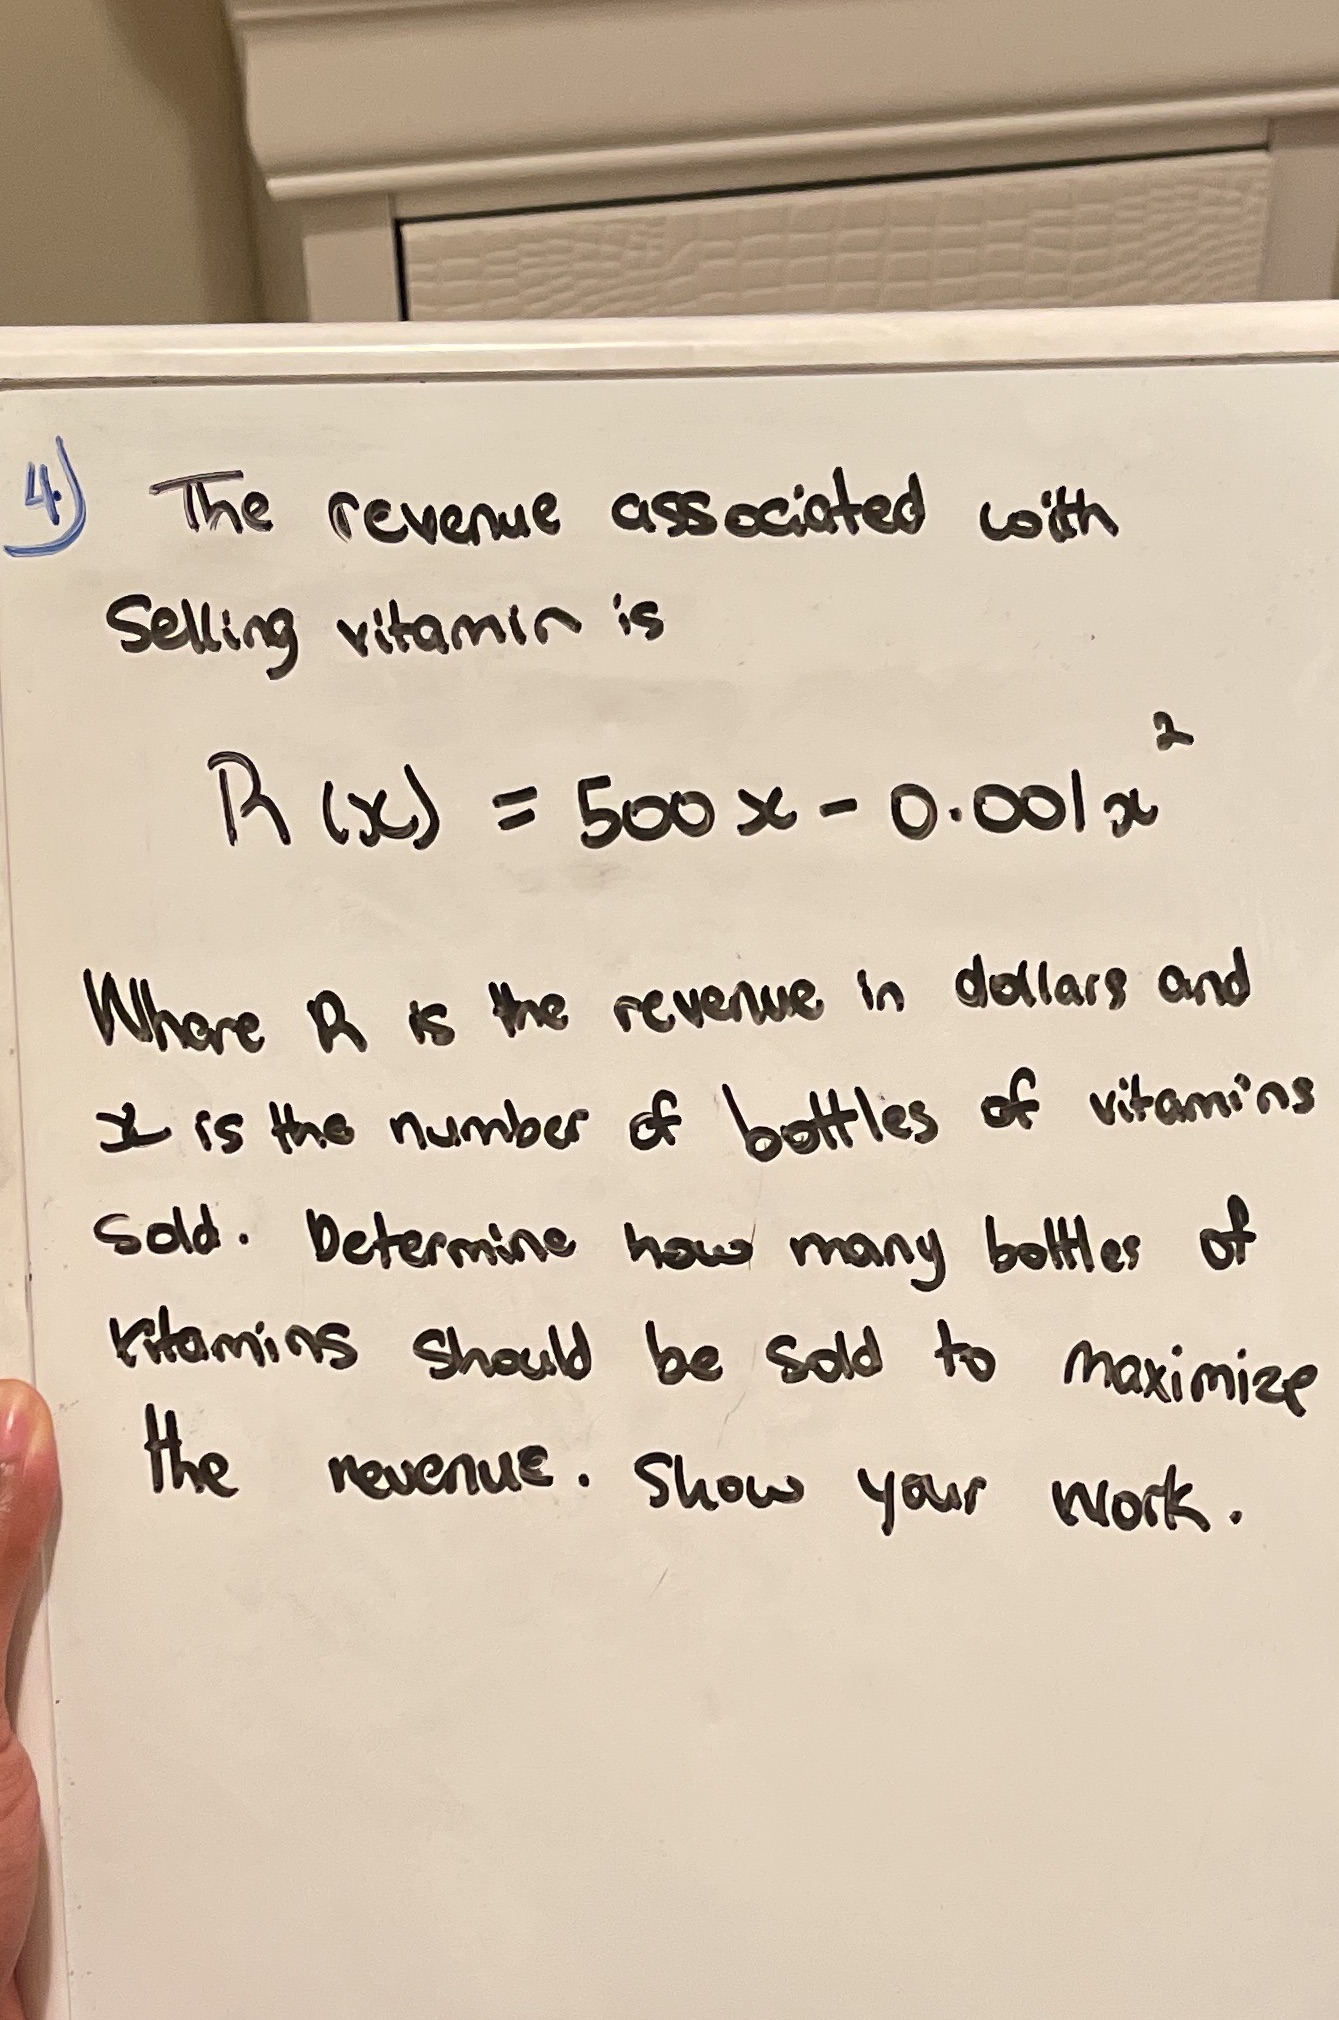 4.) The revenue associated with
Selling vitamin is
R(x) = 500x - 0.001x²
Where R is the revenue in dollars and
x is the number of bottles of vitamins
sold. Determine how many bottles of
vitamins should be sold to maximize
the revenue. Show your work.